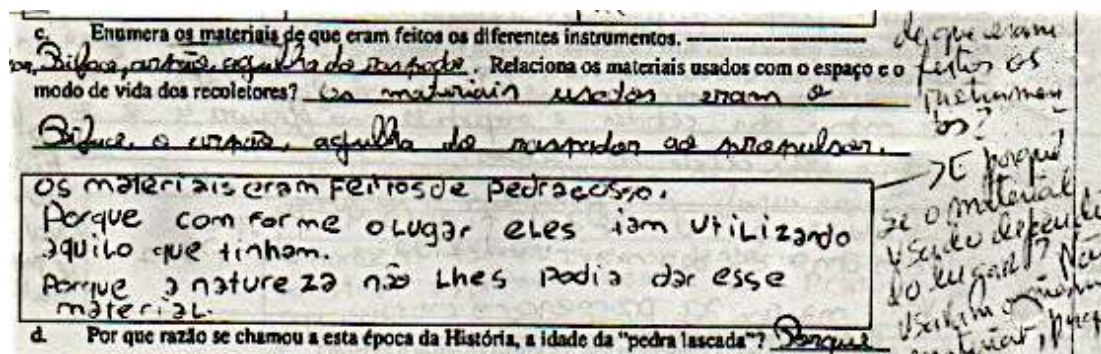 c. Enumera os materiais de que eram feitos os diferentes instrumentos.
Biface, arpão, agulha do raspador. Relaciona os materiais usados com o espaço e o
modo de vida dos recoletores? Os materiais usados eram o
Biface, o arpão, agulha do raspador ao propulsor.
os materiais eram feitos de pedra e osso.
Porque conforme o lugar eles iam utilizando
aquilo que tinham.
Porque a natureza não lhes podia dar esse
material.
d. Por que razão se chamou a esta época da História, a idade da "pedra lascada"? Porque
de que eram
feitos os
instrumen
tos?
E porquê
se o material
usado depende
do lugar? Não
usavam o mesmo
material, porque